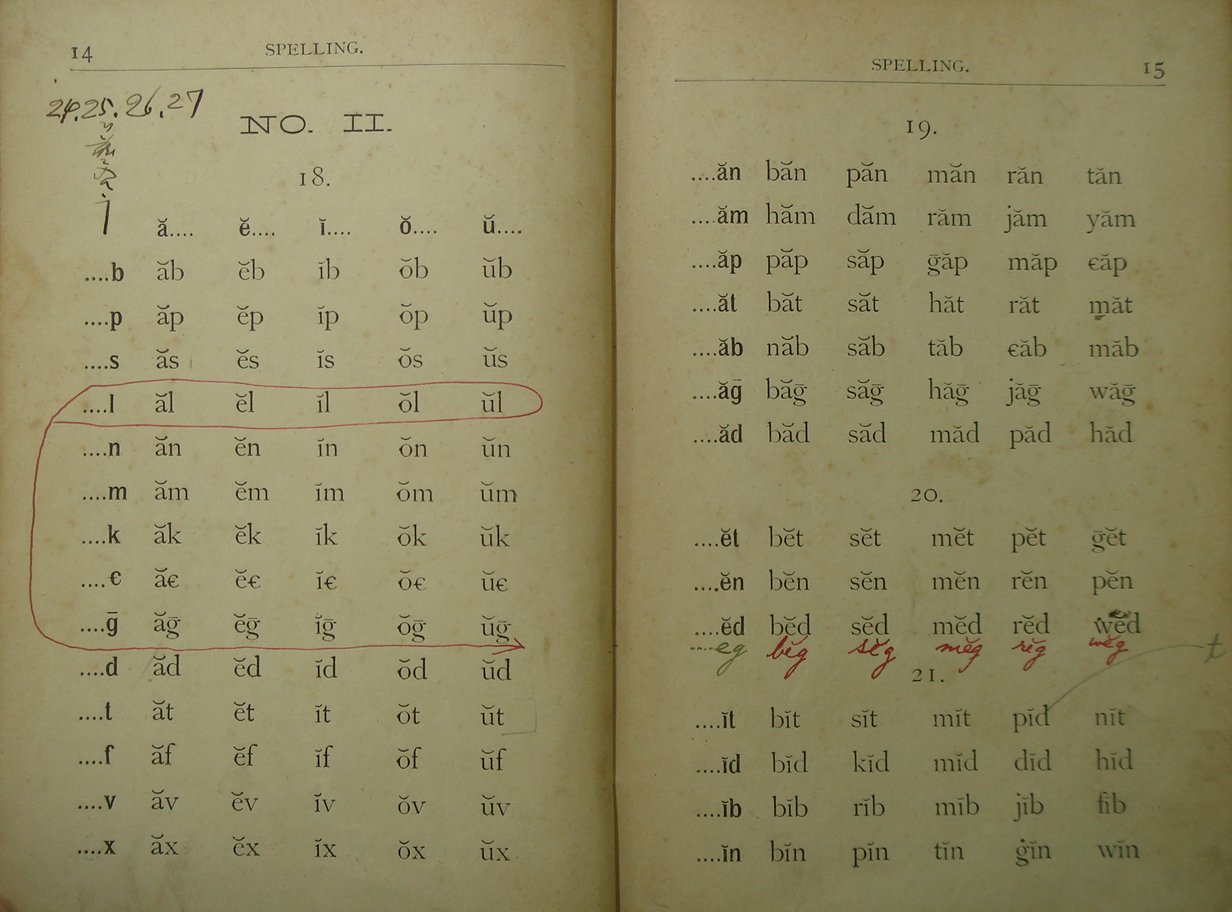 14 SPELLING.
24. 25. 26. 27
NO. II.
18.
ă.... ĕ.... ĭ.... ŏ.... ŭ....
....b ăb ĕb ĭb ŏb ŭb
....p ăp ĕp ĭp ŏp ŭp
....s ăs ĕs ĭs ŏs ŭs
....l ăl ĕl ĭl ŏl ŭl
....n ăn ĕn ĭn ŏn ŭn
....m ăm ĕm ĭm ŏm ŭm
....k ăk ĕk ĭk ŏk ŭk
....є ăє ĕє ĭє ŏє ŭє
....ḡ ăḡ ĕḡ ĭḡ ŏḡ ŭḡ
....d ăd ĕd ĭd ŏd ŭd
....t ăt ĕt ĭt ŏt ŭt
....f ăf ĕf ĭf ŏf ŭf
....v ăv ĕv ĭv ŏv ŭv
....x ăx ĕx ĭx ŏx ŭx
SPELLING. 15
19.
....ăn băn păn măn răn tăn
....ăm hăm dăm răm jăm yăm
....ăp păp săp ḡăp măp єăp
....ăt băt săt hăt răt măt
....ăb năb săb tăb єăb măb
....ăḡ băḡ săḡ hăḡ jăḡ wăḡ
....ăd băd săd măd păd hăd
20.
....ĕt bĕt sĕt mĕt pĕt ḡĕt
....ĕn bĕn sĕn mĕn rĕn pĕn
....ĕd bĕd sĕd mĕd rĕd wĕd
....eg bĕg sĕg mĕg rĕg wĕg
t
21.
....ĭt bĭt sĭt mĭt pĭd nĭt
....ĭd bĭd kĭd mĭd dĭd hĭd
....ĭb bĭb rĭb mĭb jĭb fĭb
....ĭn bĭn pĭn tĭn ġĭn wĭn